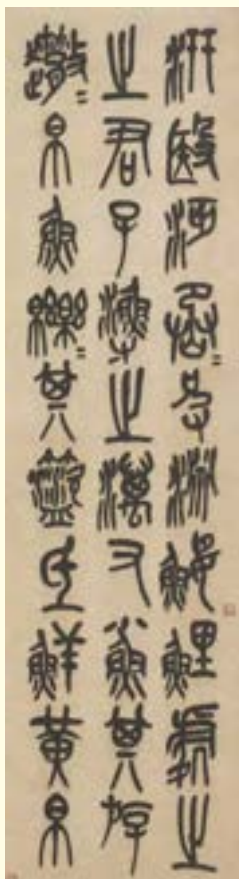 汧殹沔丞〻皮淵鰋鯉處之
之君子漁之澫又小魚其斿
帛魚皪〻其盜氐鮮黃帛